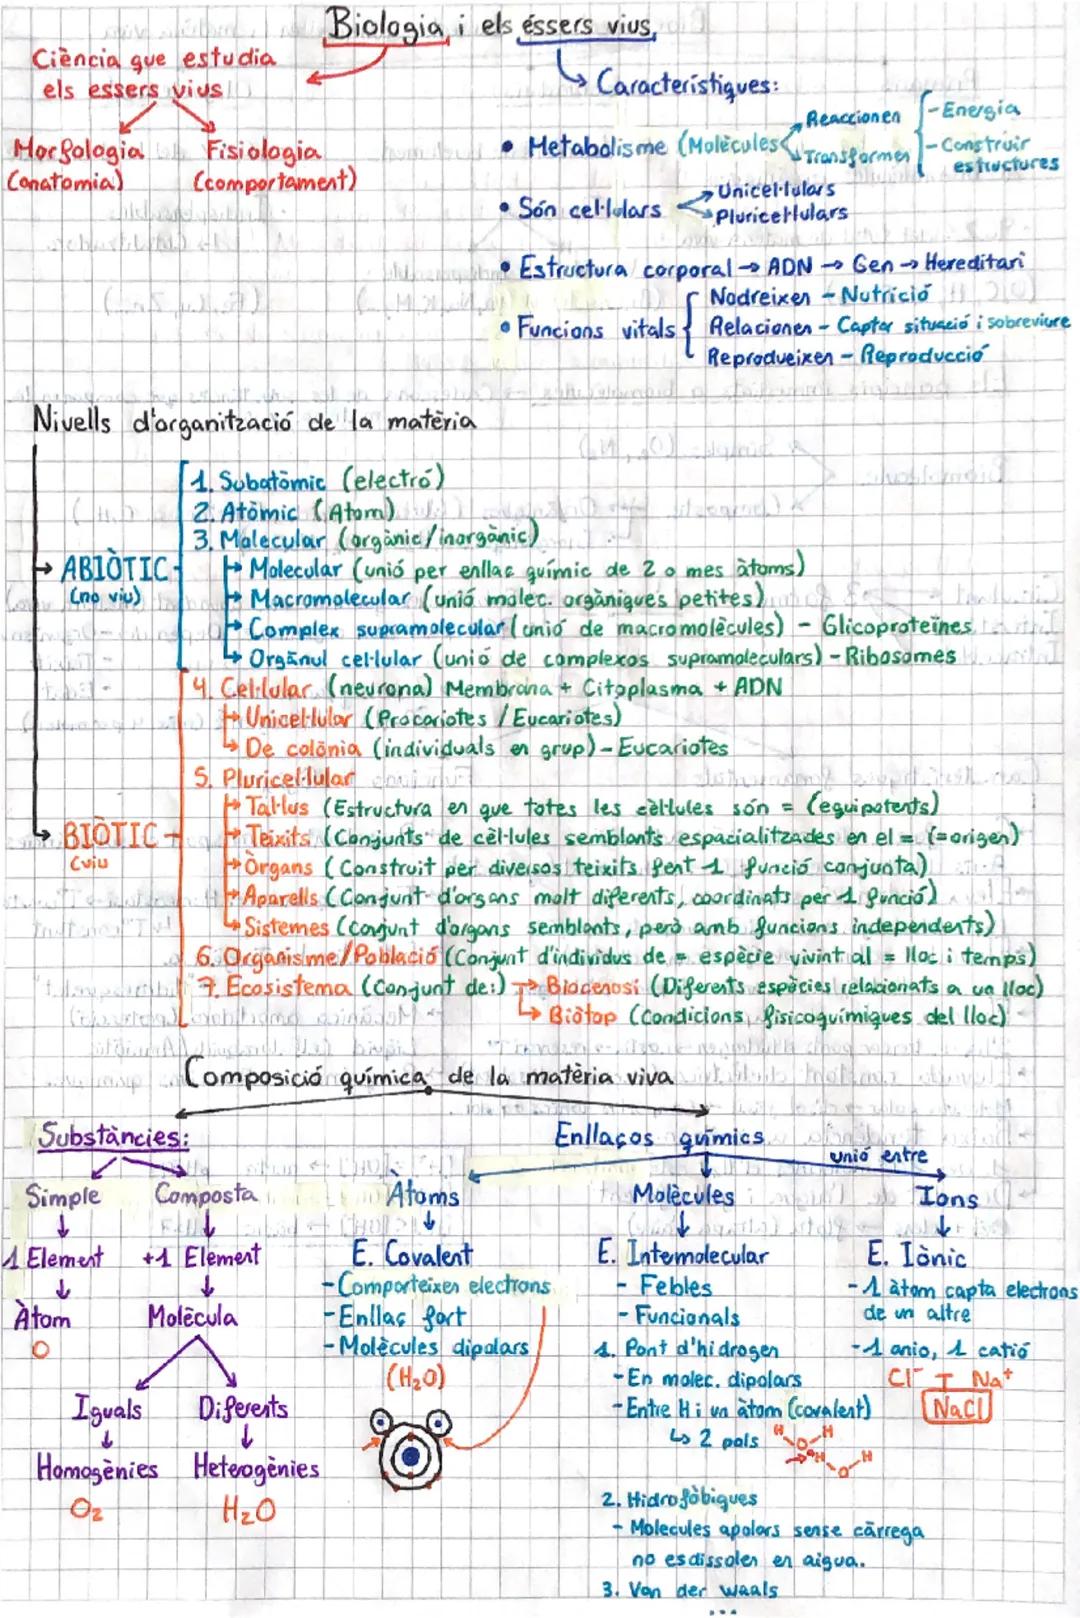 Biologia i els éssers vius.
Ciència que estudia
els essers vius
Morfologia
(anatomia)
Fisiologia
(comportament)
Característiques:
• Metabolisme (Molècules
Reaccionen
Transformen
- Energia
- Construir
estructures
• Són cel·lulars
Unicel·lulars
Pluricel·lulars
• Estructura corporal → ADN → Gen → Hereditari
• Funcions vitals
Nodreixen - Nutrició
Relacionen - Captar situació i sobreviure
Reprodueixen - Reproducció
Nivells d'organització de la matèria
ABIÒTIC
(no viu)
1. Subatòmic (electró)
2. Atòmic (Atom)
3. Molecular (orgànic/inorgànic)
Molecular (unió per enllaç químic de 2 o mes àtoms)
Macromolecular (unió molec. orgàniques petites)
Complex supramolecular (unió de macromolècules) - Glicoproteïnes
Orgànul cel·lular (unió de complexos supramoleculars) - Ribosomes
BIÒTIC
(viu
4. Cel·lular (neurona) Membrana + Citoplasma + ADN
Unicel·lular (Procariotes / Eucariotes)
De colònia (individuals en grup) - Eucariotes
5. Pluricel·lular
Tal·lus (Estructura en que totes les cèl·lules són = (equipotents)
Teixits (Conjunts de cèl·lules semblants espacialitzades en el = (=origen)
Òrgans (Construit per diversos teixits fent 1 funció conjunta)
Aparells (Conjunt d'organs molt diferents, coordinats per 1 funció)
Sistemes (conjunt d'organs semblants, però amb funcions independents)
6. Organisme/Població (Conjunt d'individus de = espècie vivint al = lloc i temps)
7. Ecosistema (Conjunt de:)
Biocenosi (Diferents espècies relacionats a un lloc)
Biòtop (Condicions fisicoquímiques del lloc)
Composició química de la matèria viva
Substàncies:
Simple
1 Element
Àtom
O
Composta
+1 Element
Molècula
Iguals
Homogènies
O₂
Diferents
Heterogènies
H₂O
Enllaços químics
unió entre
Àtoms
E. Covalent
- Comparteixen electrons
- Enllaç fort
- Molècules dipolars
(H₂O)
Molècules
E. Intermolecular
- Febles
- Funcionals
1. Pont d'hidrogen
- En molec. dipolars
- Entre H i un àtom (covalent)
↳ 2 pols
H
O
H
H
O
H
2. Hidrofòbiques
- Molecules apolars sense càrrega
no es dissolen en aigua.
3. Van der waals
...
Ions
E. Iònic
- 1 àtom capta electrons
de un altre
- 1 anio, 1 catió
Cl⁻ Na⁺
NaCl